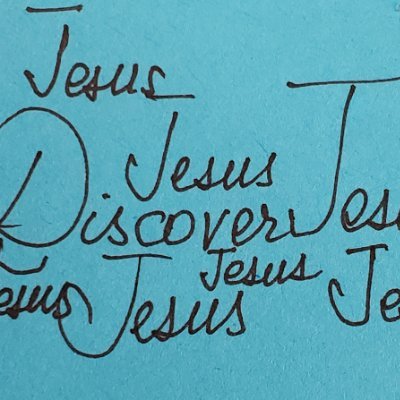 Jesus
Jesus
Discover Jesu
Jesus
esus Jesus Je